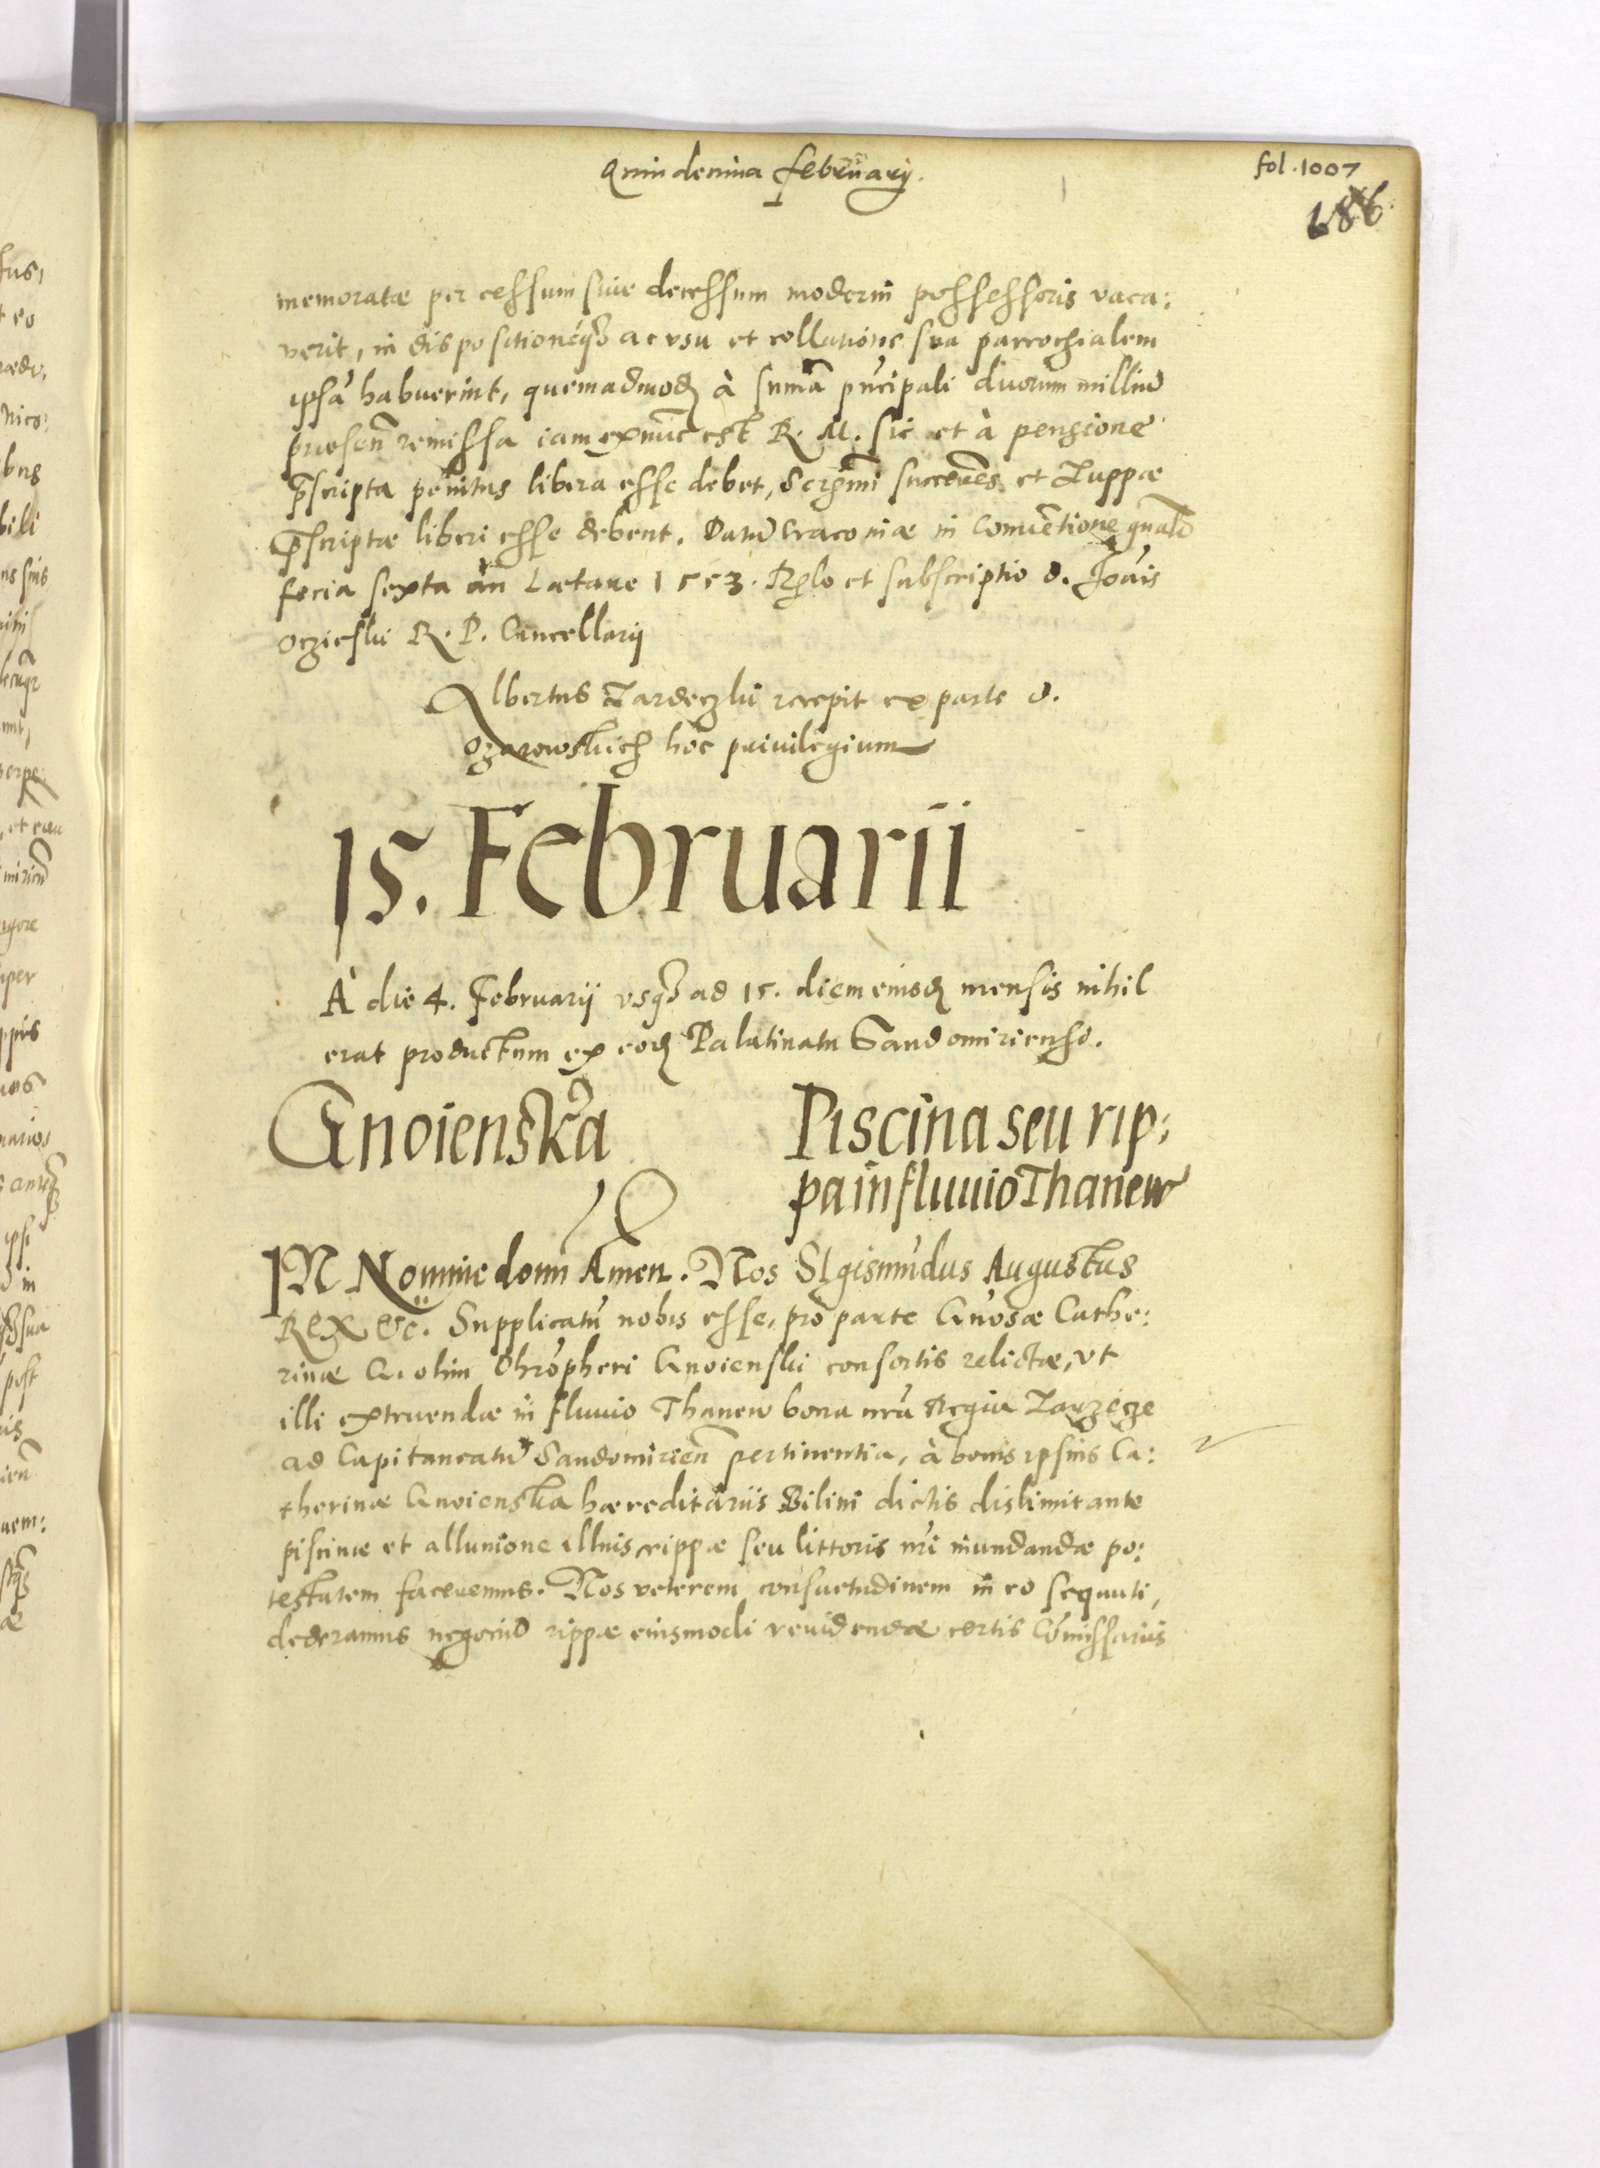 Quindecima february.
fol. 1007
686
memoratæ per cessum siue decessum moderni possessoris vaca:
verit, in dispositionéq3 ac vsu et collatione sua parrochialem
ipsā habuerint, quemadmodȝ à sum̄a pn̄cipali duorum milliū
præsen̄ remissa iam exnūc est R. M. sic et à pensione
p̄scripta penitus libera esse debet, Serēmi succeēs et Zuppæ
p̄scriptæ liberi esse debent. Datū Cracoviæ in Conuētione gnāli
feria sexta an̄ Lætare 1553. Rēlo et subscriptio d. Joān̄is
Oczieski R. P. Cancellarij
Albertus recepit ex parte d.
Ozarowskich hoc priuilegium
15. Februarii
A die 4. Februarij vsq3 ad 15. diem eiusdȝ mensis nihil
erat productum ex eodȝ Palatinatu Sandomiriensi.
Gnoienska
Piscina seu rip:
pa in fluuio Thanew
IN Nomine domi Amen. Nos Sigismūdus Augustus
Rex &c. Supplicatū nobis esse, pro parte Gn̄osæ Cathe:
rinæ G. olim Chrōpheri Gnoienski consortis relictæ, vt
illi extruendæ in fluuio Thanew bona nrā Regia Zarzecze
ad Capitaneatū Sandomirien̄ pertinentia, à bonis ipsius Ca:
therinæ Gnoienska hæreditariis Bilini dictis dislimitante
piscinæ et alluuione illius rippæ seu littoris nri inundandæ po:
testatem faceremus. Nos veterem consuetudinem in eo sequuti,
dederamus negociū rippæ eiusmodi reuidendæ certis Com̄issariis